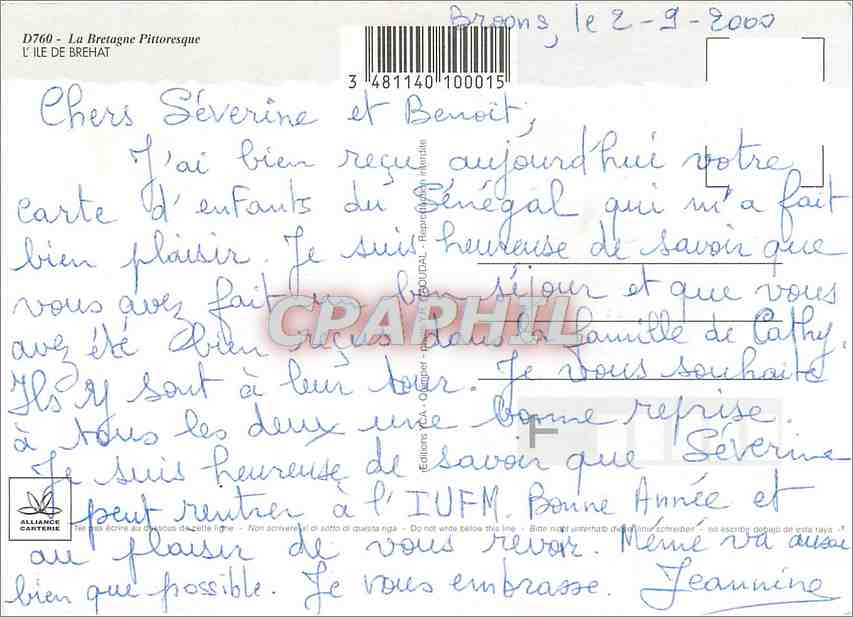 Broons, le 2-9-2000
D760 - La Bretagne Pittoresque
L'ILE DE BREHAT
3 481140 100015
Chers Séverine et Benoît,
J'ai bien reçu aujourd'hui votre
carte d'enfants du Sénégal qui m'a fait
bien plaisir. Je suis heureuse de savoir que
vous avez fait un bon séjour et que vous
avez été bien reçus dans la famille de Cathy.
Ils y sont à leur tour. Je vous souhaite
à tous les deux une bonne reprise.
Je suis heureuse de savoir que Séverine
peut rentrer à l'IUFM. Bonne Année et
au plaisir de vous revoir. Mémé va aussi
bien que possible. Je vous embrasse. Jeannine
CPAPHIL
ALLIANCE
CARTERIE
Ne pas écrire au dessous de cette ligne - Non scrivere al di sotto di questa riga - Do not write below this line - Bitte nicht unterhalb dieser linie schreiben - no escribir debajo de esta raya
Reproduction interdite